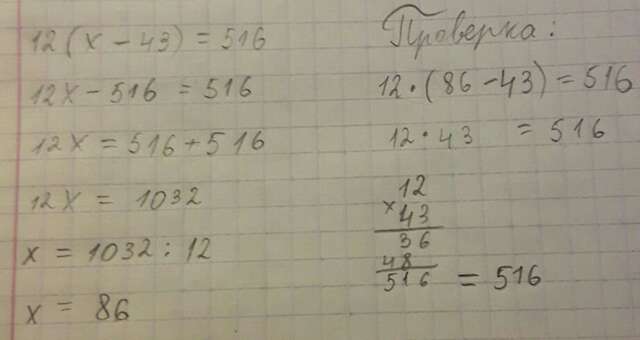 12(x - 43) = 516
12x - 516 = 516
12x = 516 + 516
12x = 1032
x = 1032 : 12
x = 86
Проверка:
12 · (86 - 43) = 516
12 · 43 = 516
12
× 43
36
48
516 = 516